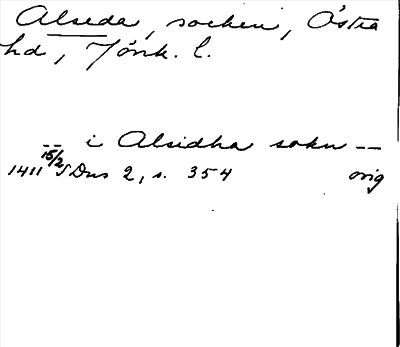 Alseda, socken, Östra
hd, Jönk. l.
-- i Alsidha sokn --
1411 15/2 SDns 2, s. 354 orig